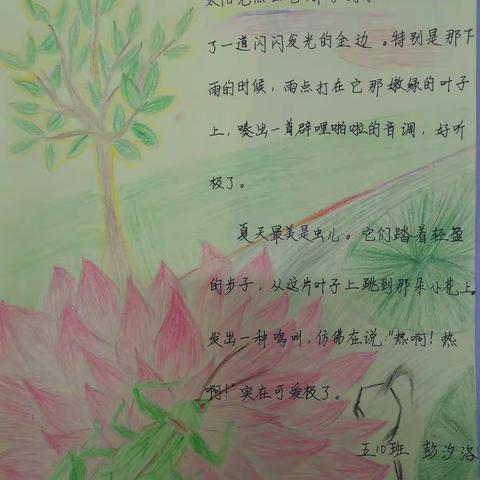 了一道闪闪发光的金边。特别是那下
雨的时候，雨点打在它那嫩绿的叶子
上，奏出一首辟哩啪啦的音调，好听
极了。
夏天最美是虫儿。它们踏着轻盈
的步子，从这片叶子上跳到那朵小花上。
发出一种鸣叫，仿佛在说："热啊！热
啊！"实在可爱极了。
五10班 彭汐洛